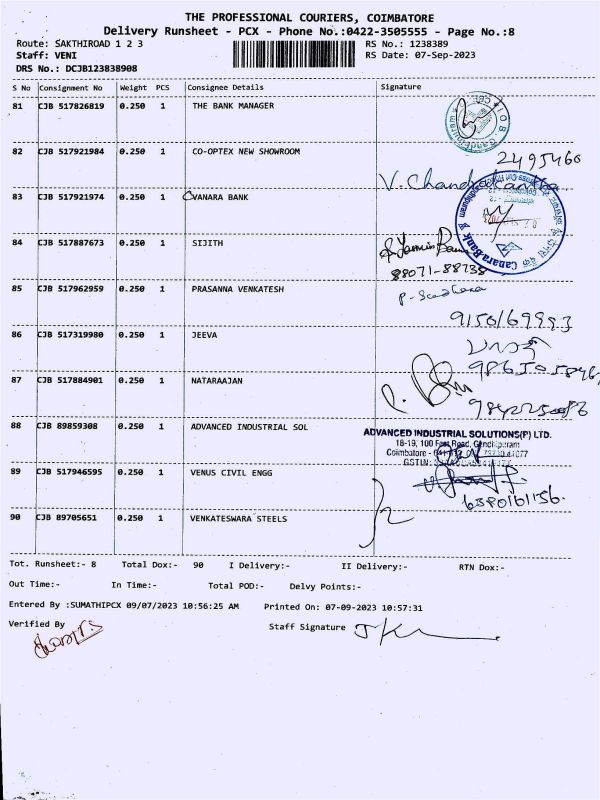 THE PROFESSIONAL COURIERS, COIMBATORE
Delivery Runsheet - PCX - Phone No.:0422-3505555 - Page No.:8
Route: SAKTHIROAD 1 2 3 RS No.: 1238389
Staff: VENI RS Date: 07-Sep-2023
DRS No.: DCJB123838908
S No Consignment No Weight PCS Consignee Details Signature
81 CJB 517826819 0.250 1 THE BANK MANAGER
82 CJB 517921984 0.250 1 CO-OPTEX NEW SHOWROOM
2495460
V. Chandrakantha
83 CJB 517921974 0.250 1 CVANARA BANK
Canara Bank
84 CJB 517887673 0.250 1 SIJITH
88071-88738
85 CJB 517962959 0.250 1 PRASANNA VENKATESH
9150169993
86 CJB 517319980 0.250 1 JEEVA
9865505846
87 CJB 517884901 0.250 1 NATARAAJAN
88 CJB 89859308 0.250 1 ADVANCED INDUSTRIAL SOL
ADVANCED INDUSTRIAL SOLUTIONS(P) LTD.
18-19, 100 Feet Road, Gandhipuram
Coimbatore -
GSTIN:
89 CJB 517946595 0.250 1 VENUS CIVIL ENGG
6380161156.
90 CJB 89705651 0.250 1 VENKATESWARA STEELS
Tot. Runsheet:- 8 Total Dox:- 90 I Delivery:- II Delivery:- RTN Dox:-
Out Time:- In Time:- Total POD:- Delvy Points:-
Entered By :SUMATHIPCX 09/07/2023 10:56:25 AM Printed On: 07-09-2023 10:57:31
Verified By Staff Signature